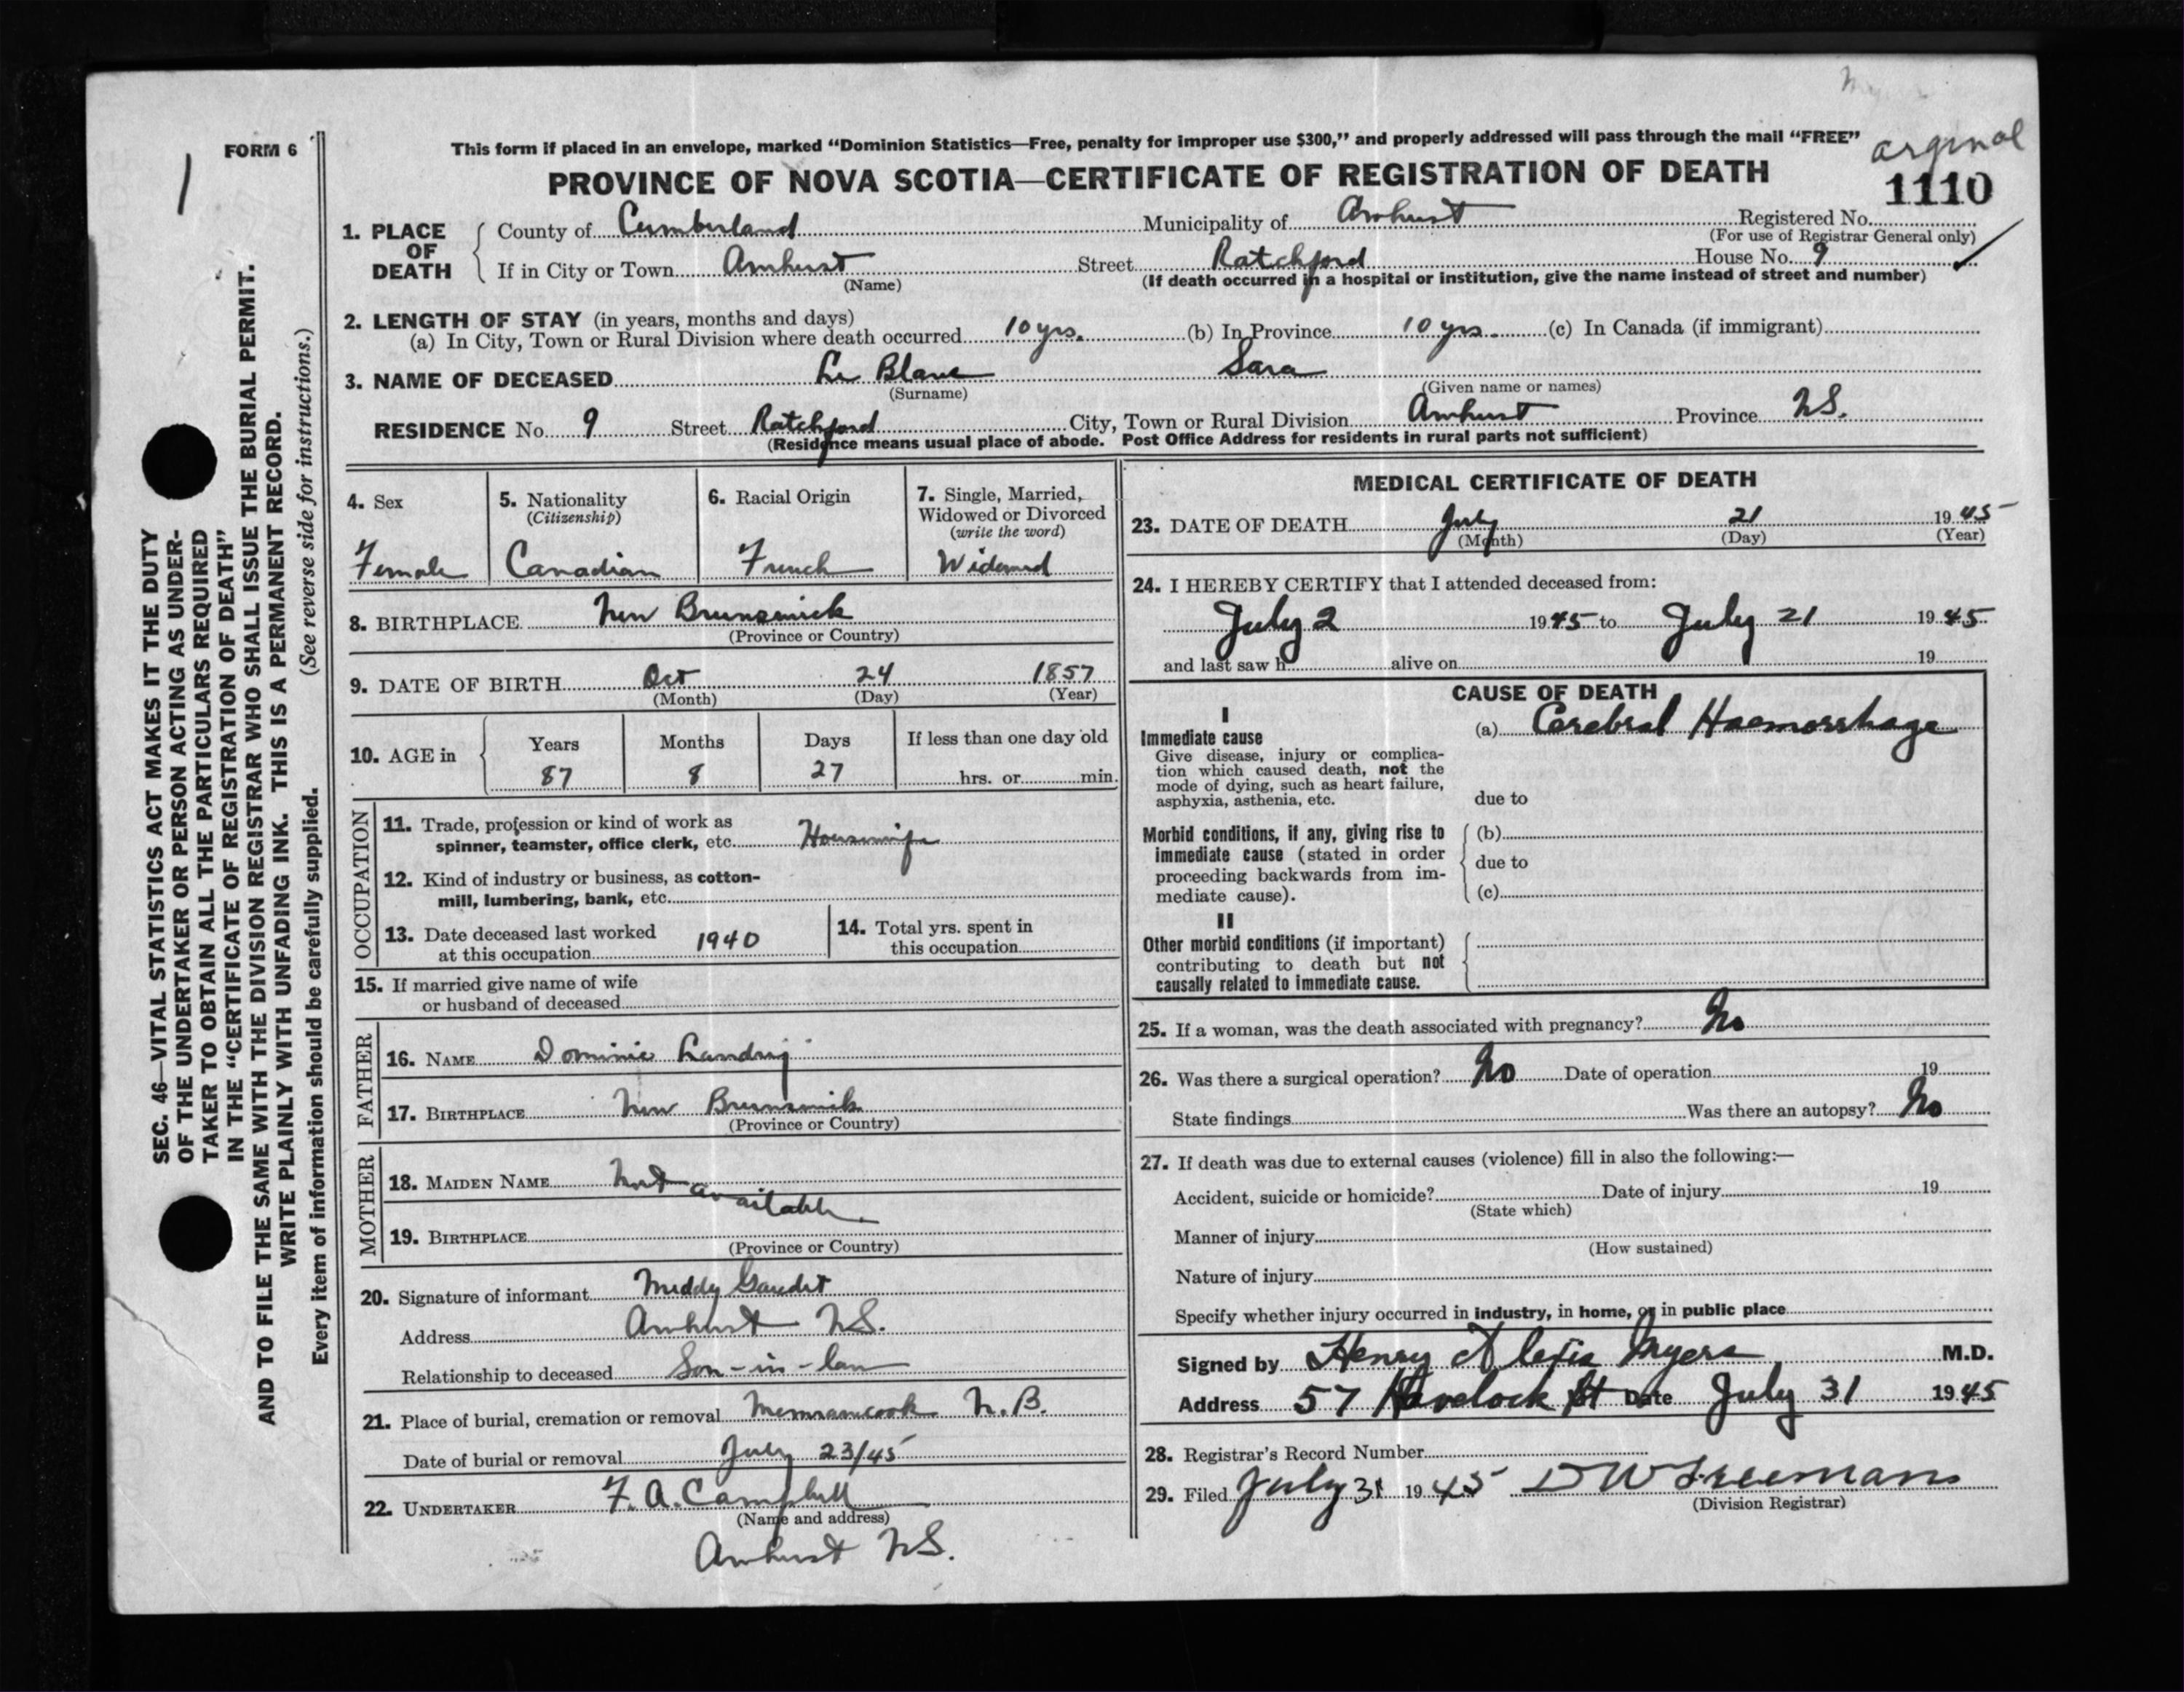 FORM 6
This form if placed in an envelope, marked “Dominion Statistics—Free, penalty for improper use $300,” and properly addressed will pass through the mail “FREE”
orginal
PROVINCE OF NOVA SCOTIA—CERTIFICATE OF REGISTRATION OF DEATH
1110
1. PLACE OF DEATH
County of Cumberland Municipality of Amherst Registered No.
(For use of Registrar General only)
If in City or Town Amherst Street Ratchford House No. 9
(Name) (If death occurred in a hospital or institution, give the name instead of street and number)
2. LENGTH OF STAY (in years, months and days)
(a) In City, Town or Rural Division where death occurred 10 yrs. (b) In Province 10 yrs. (c) In Canada (if immigrant)
3. NAME OF DECEASED Le Blanc Sara
(Surname) (Given name or names)
RESIDENCE No. 9 Street Ratchford City, Town or Rural Division Amherst Province N.S.
(Residence means usual place of abode. Post Office Address for residents in rural parts not sufficient)
4. Sex
Female
5. Nationality
(Citizenship)
Canadian
6. Racial Origin
French
7. Single, Married,
Widowed or Divorced
(write the word)
Widowed
8. BIRTHPLACE New Brunswick
(Province or Country)
9. DATE OF BIRTH Oct 24 1857
(Month) (Day) (Year)
10. AGE in
Years Months Days If less than one day old
87 8 27 hrs. or min.
OCCUPATION
11. Trade, profession or kind of work as
spinner, teamster, office clerk, etc. Housewife
12. Kind of industry or business, as cotton-
mill, lumbering, bank, etc.
13. Date deceased last worked
at this occupation 1940
14. Total yrs. spent in
this occupation
15. If married give name of wife
or husband of deceased
FATHER
16. NAME Dominic Landry
17. BIRTHPLACE New Brunswick
(Province or Country)
MOTHER
18. MAIDEN NAME Not available
19. BIRTHPLACE
(Province or Country)
20. Signature of informant Meddy Gaudet
Address Amherst N.S.
Relationship to deceased Son-in-law
21. Place of burial, cremation or removal Memramcook N.B.
Date of burial or removal July 23/45
22. UNDERTAKER F. A. Campbell
(Name and address)
Amherst N.S.
MEDICAL CERTIFICATE OF DEATH
23. DATE OF DEATH July 21 1945
(Month) (Day) (Year)
24. I HEREBY CERTIFY that I attended deceased from:
July 2 1945 to July 21 1945
and last saw h alive on 19
CAUSE OF DEATH
I
Immediate cause
Give disease, injury or complica-
tion which caused death, not the
mode of dying, such as heart failure,
asphyxia, asthenia, etc.
(a) Cerebral Haemorrhage
due to
Morbid conditions, if any, giving rise to
immediate cause (stated in order
proceeding backwards from im-
mediate cause).
(b)
due to
(c)
II
Other morbid conditions (if important)
contributing to death but not
causally related to immediate cause.
25. If a woman, was the death associated with pregnancy? No
26. Was there a surgical operation? No Date of operation 19
State findings Was there an autopsy? No
27. If death was due to external causes (violence) fill in also the following:—
Accident, suicide or homicide? Date of injury 19
(State which)
Manner of injury
(How sustained)
Nature of injury
Specify whether injury occurred in industry, in home, or in public place
Signed by Henry Alexis Myers M.D.
Address 57 Havelock St Date July 31 1945
28. Registrar's Record Number
29. Filed July 31 1945 D W Freemans
(Division Registrar)
SEC. 46—VITAL STATISTICS ACT MAKES IT THE DUTY
OF THE UNDERTAKER OR PERSON ACTING AS UNDER-
TAKER TO OBTAIN ALL THE PARTICULARS REQUIRED
IN THE “CERTIFICATE OF REGISTRATION OF DEATH”
AND TO FILE THE SAME WITH THE DIVISION REGISTRAR WHO SHALL ISSUE THE BURIAL PERMIT.
WRITE PLAINLY WITH UNFADING INK. THIS IS A PERMANENT RECORD.
Every item of information should be carefully supplied. (See reverse side for instructions.)